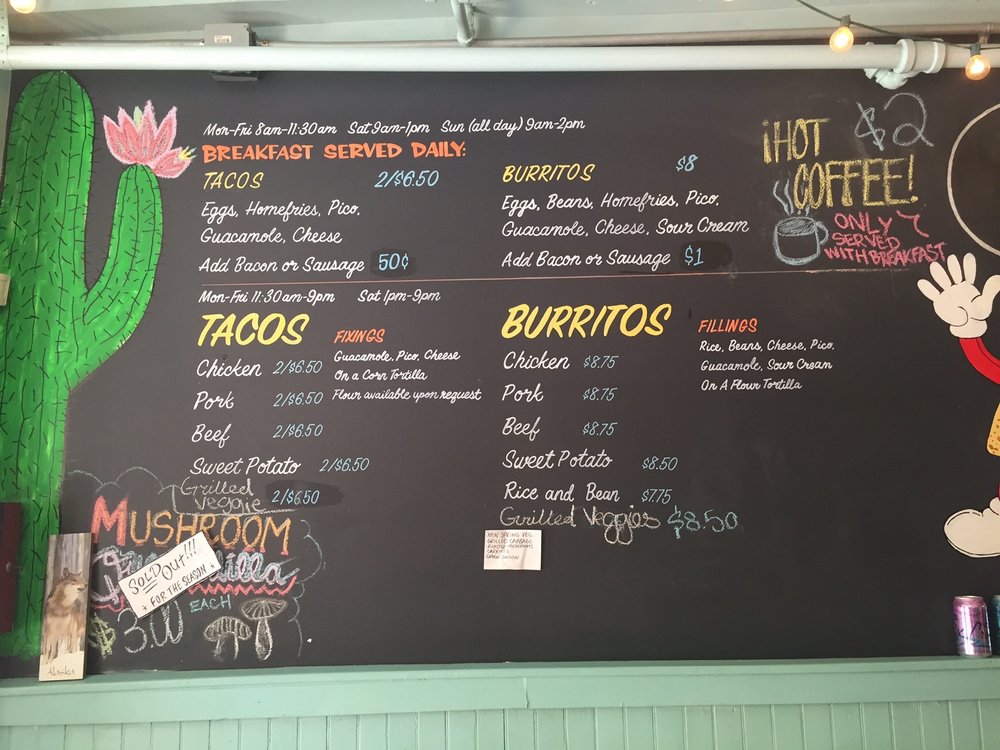 Mon-Fri 8am-11:30am Sat 9am-1pm Sun (all day) 9am-2pm
BREAKFAST SERVED DAILY:
TACOS 2/$6.50
Eggs, Homefries, Pico,
Guacamole, Cheese
Add Bacon or Sausage 50¢
BURRITOS $8
Eggs, Beans, Homefries, Pico,
Guacamole, Cheese, Sour Cream
Add Bacon or Sausage $1
$2
¡HOT
COFFEE!
ONLY
SERVED
WITH BREAKFAST
Mon-Fri 11:30am-9pm Sat 1pm-9pm
TACOS
Chicken 2/$6.50
Pork 2/$6.50
Beef 2/$6.50
Sweet Potato 2/$6.50
Grilled
Veggie 2/$6.50
FIXINGS
Guacamole, Pico, Cheese
On a Corn Tortilla
Flour available upon request
BURRITOS
Chicken $8.75
Pork $8.75
Beef $8.75
Sweet Potato $8.50
Rice and Bean $7.75
Grilled Veggies $8.50
FILLINGS
Rice, Beans, Cheese, Pico,
Guacamole, Sour Cream
On A Flour Tortilla
NEW SPRING VEG
GRILLED CABBAGE
ROASTED MUSHROOMS
CARROTS
GREEN ONION
MUSHROOM
SOLD OUT!!!
* FOR THE SEASON *
$3.00
EACH
Alaska